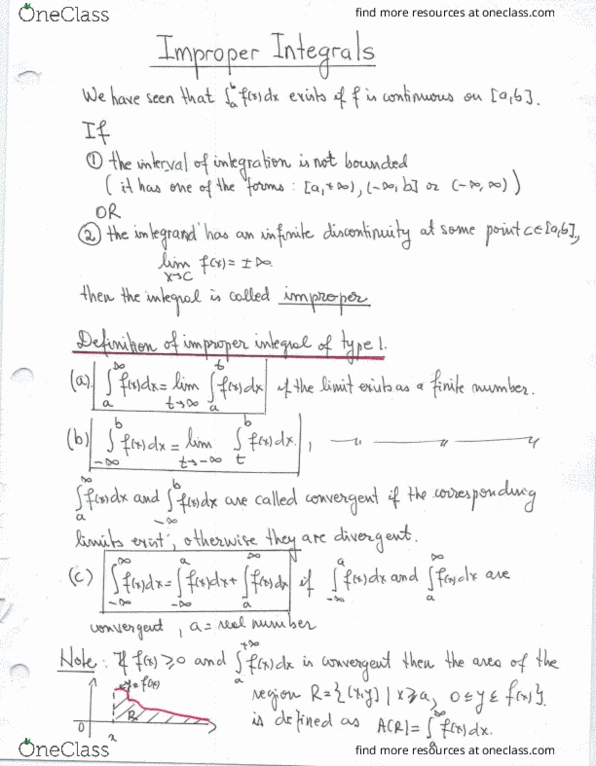 OneClass find more resources at oneclass.com
Improper Integrals
We have seen that ∫_a^b f(x)dx exists if f is continuous on [a,b].
If
① the interval of integration is not bounded
(it has one of the forms: [a,+∞), (-∞,b] or (-∞,∞))
OR
② the integrand has an infinite discontinuity at some point c∈[a,b],
lim_{x→c} f(x) = ±∞.
then the integral is called improper
Definition of improper integral of type 1.
(a) ∫_a^∞ f(x)dx = lim_{t→∞} ∫_a^t f(x)dx if the limit exists as a finite number.
(b) ∫_{-∞}^b f(x)dx = lim_{t→-∞} ∫_t^b f(x)dx. , —〃— 〃 — 〃
∫_a^∞ f(x)dx and ∫_{-∞}^b f(x)dx are called convergent if the corresponding
limits exist, otherwise they are divergent.
(c) ∫_{-∞}^∞ f(x)dx = ∫_{-∞}^a f(x)dx + ∫_a^∞ f(x)dx if ∫_{-∞}^a f(x)dx and ∫_a^∞ f(x)dx are
convergent, a = real number
Note: If f(x) ≥ 0 and ∫_a^{+∞} f(x)dx is convergent then the area of the
region R = {(x,y) | x ≥ a, 0 ≤ y ≤ f(x)}.
is defined as A(R) = ∫_a^∞ f(x)dx.
y=f(x)
R
0
OneClass find more resources at oneclass.com